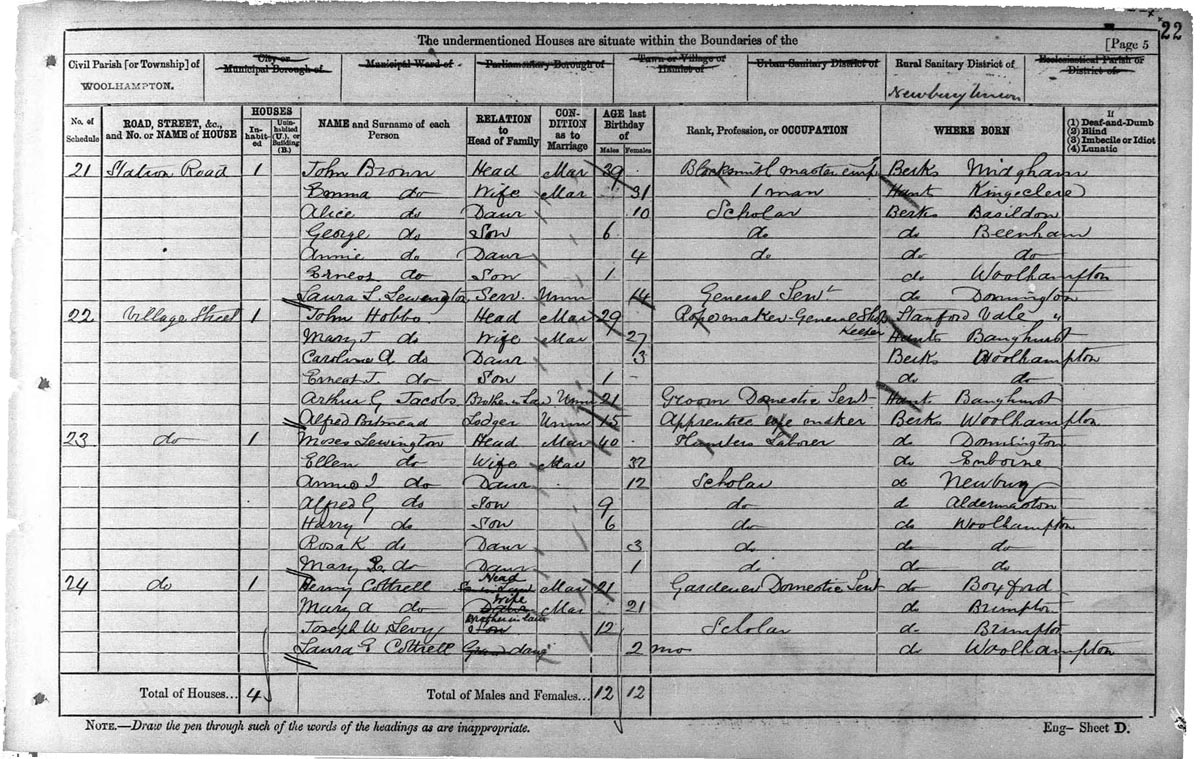 22
The undermentioned Houses are situate within the Boundaries of the
[Page 5
Civil Parish [or Township] of City or Municipal Borough of Municipal Ward of Parliamentary Borough of Town or Village of Urban Sanitary District of Rural Sanitary District of Ecclesiastical Parish or District of
WOOLHAMPTON. Newbury Union
No. of Schedule ROAD, STREET, &c., and No. or NAME of HOUSE HOUSES Inhabited Uninhabited (U.), or Building (B.) NAME and Surname of each Person RELATION to Head of Family CONDITION as to Marriage AGE last Birthday of Males Females Rank, Profession, or OCCUPATION WHERE BORN If (1) Deaf-and-Dumb (2) Blind (3) Imbecile or Idiot (4) Lunatic
21 Station Road 1 John Brown Head Mar 39 Blacksmith master emp Berks Midgham
Emma do Wife Mar 31 1 man Hants Kingsclere
Alice do Daur 10 Scholar Berks Basildon
George do Son 6 do do Beenham
Annie do Daur 4 do do do
Ernest do Son 1 do Woolhampton
Laura L. Lewington Serv. Unm 14 General Servt do Donnington
22 Village Street 1 John Hobbs Head Mar 29 Ropemaker-General Shop Keeper Stanford Vale "
Mary J do Wife Mar 27 Hants Banghurst
Caroline A do Daur 3 Berks Woolhampton
Ernest J. do Son 1 do do
Arthur G Jacobs Brother in Law Unm 21 Groom Domestic Servt Hants Banghurst
Alfred Lodger Unm 15 Apprentice maker Berks Woolhampton
23 do 1 Moses Lewington Head Mar 40 Laborer do Donnington
Ellen do Wife Mar 32 do Enborne
Annie I do Daur 12 Scholar do Newbury
Alfred G do Son 9 do do Aldermaston
Harry do Son 6 do do Woolhampton
Rosa K do Daur 3 do do do
Mary do Daur 1 do do do
24 do 1 Henry Cottrell Head Mar 21 Gardener Domestic Servt do Boxford
Mary A do Wife Mar 21 do Brimpton
Joseph W Levy Brother in law Son 12 Scholar do Brimpton
Laura E Cottrell daug 2 mo do Woolhampton
Total of Houses... 4 Total of Males and Females... 12 12
NOTE.—Draw the pen through such of the words of the headings as are inappropriate.
Eng– Sheet D.